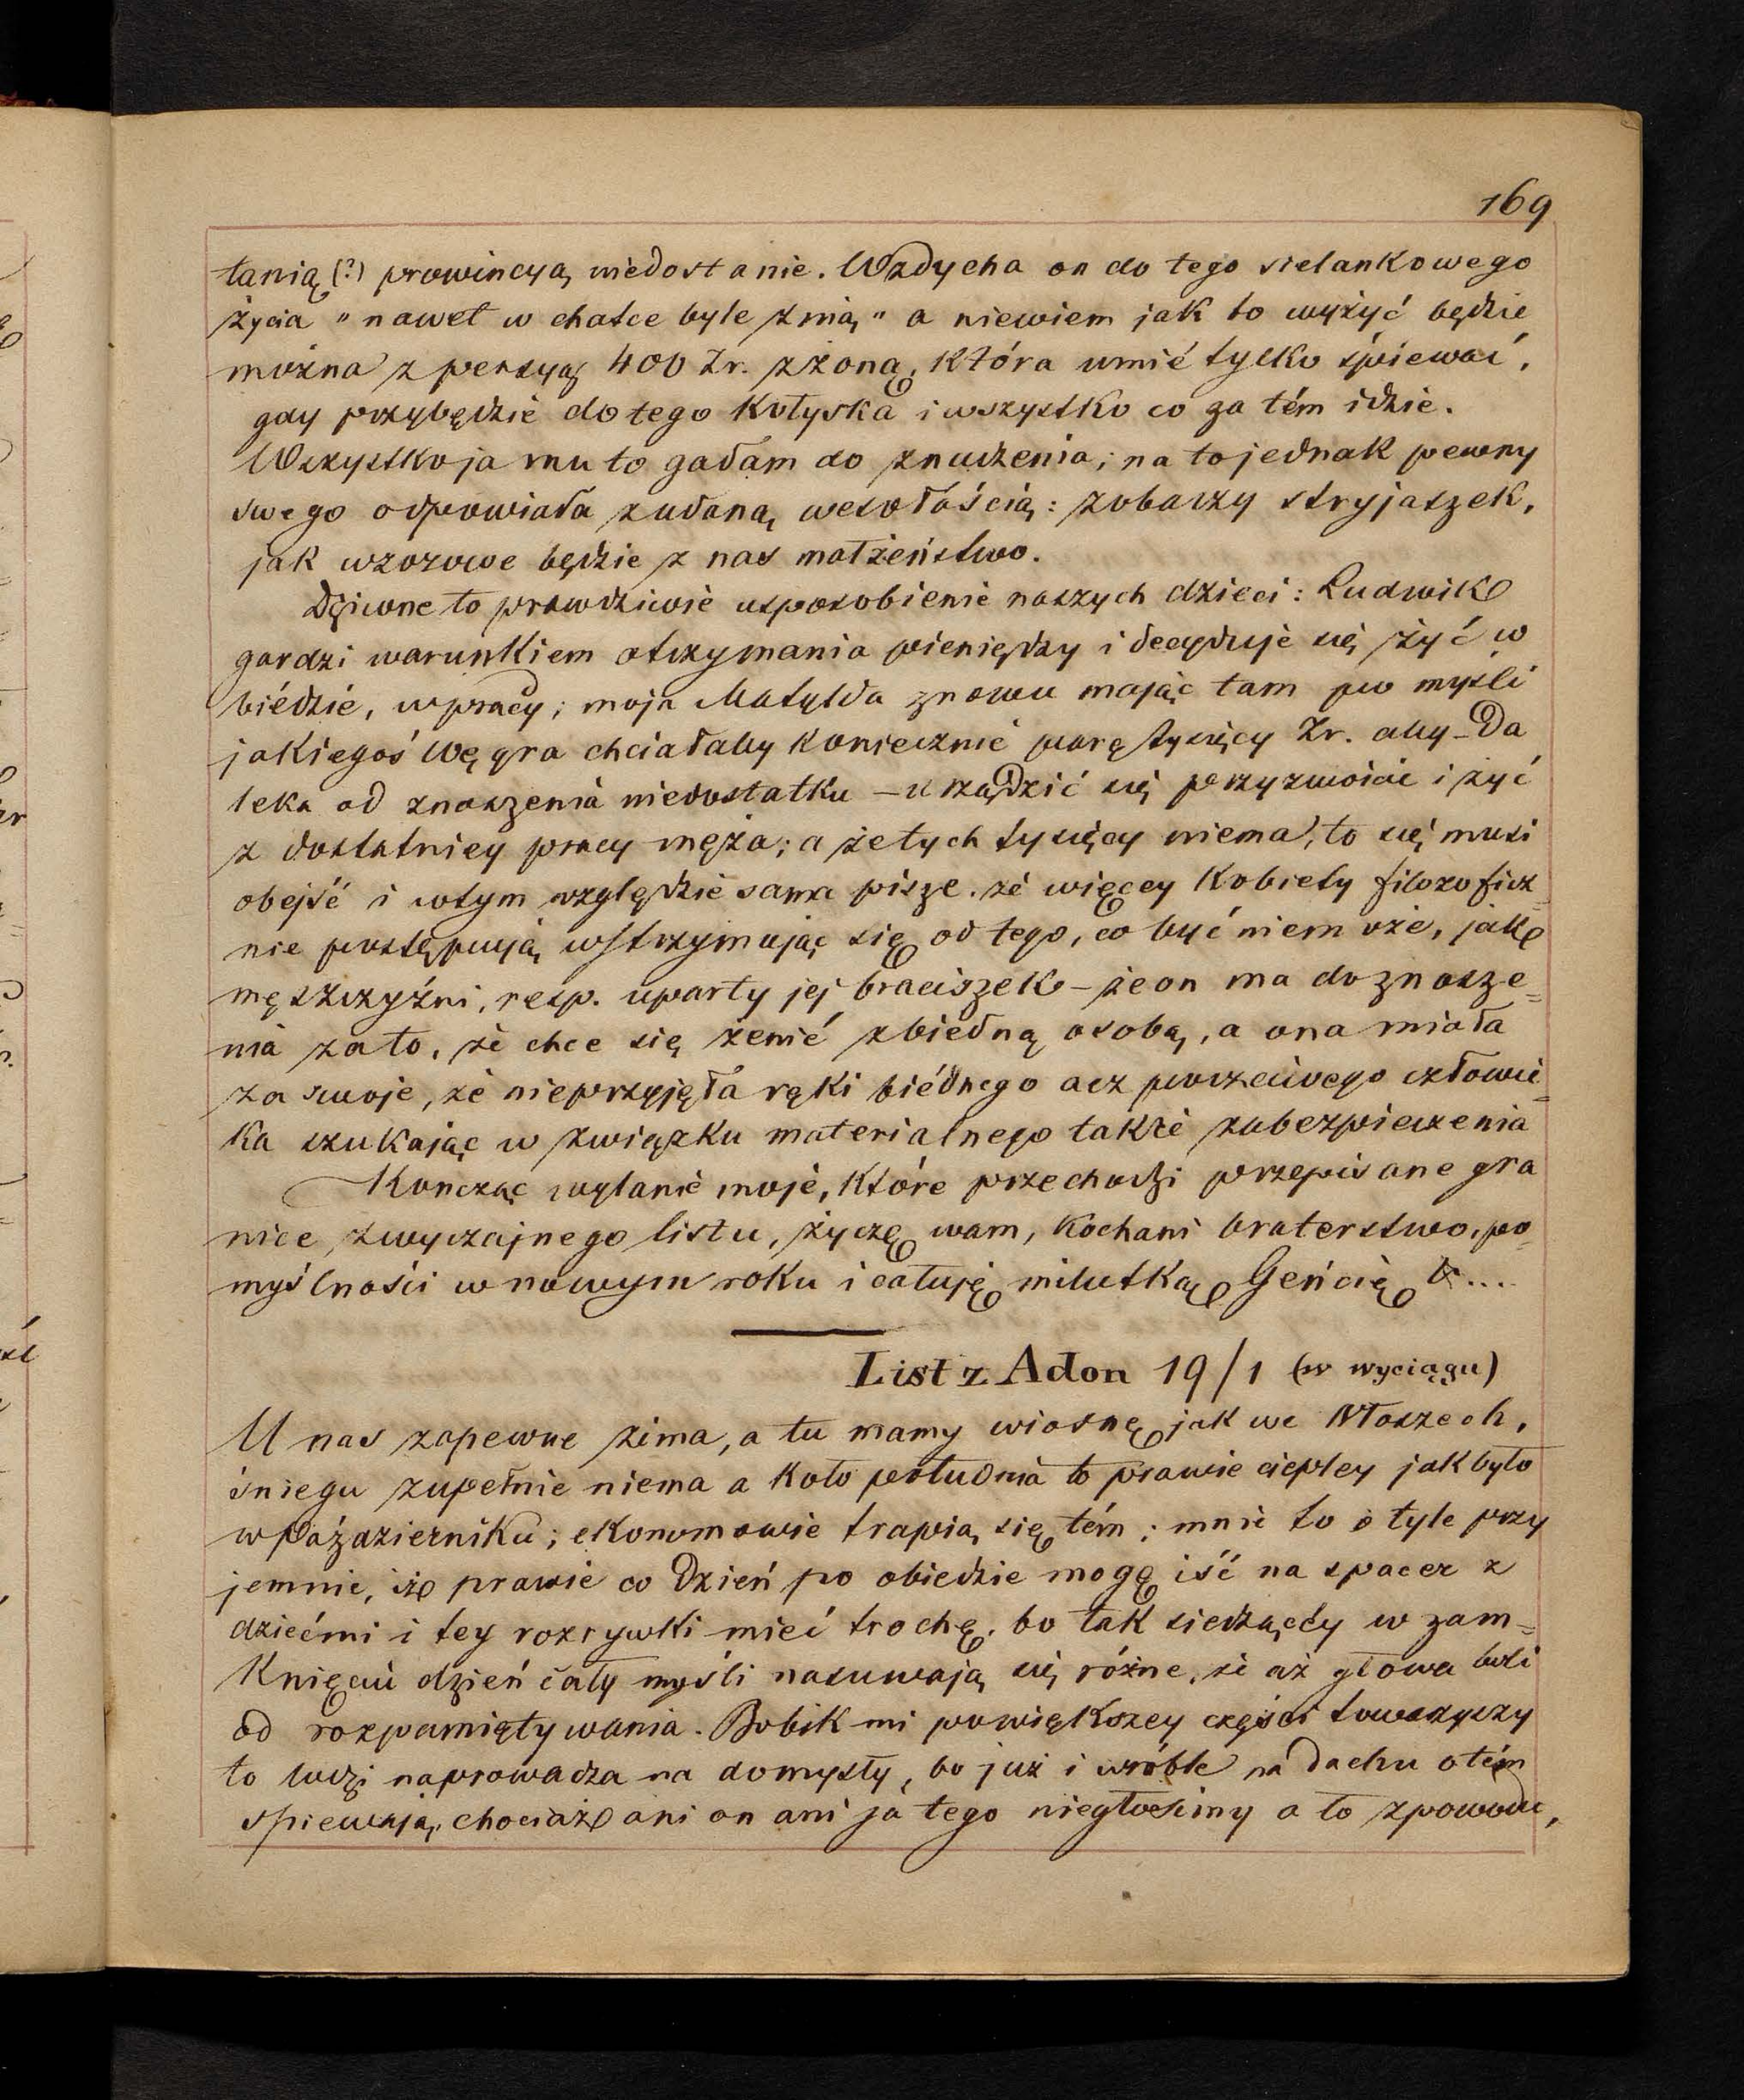 169
tanią (?) prowincyą niedostanie. Wzdycha on do tego sielankowego
życia „nawet w chatce byle z nią" a niewiem jak to wyżyć będzie
można z pensyą 400 Zr. z żoną, która umié tylko śpiewać,
gdy przybędzie do tego kołyska i wszystko co za tém idzie.
Wszystko ja mu to gadam do znudzenia; na to jednak pewny
swego odpowiada z udaną wesołością: zobaczy stryjaszek,
jak wzorowe będzie z nas małżeństwo.
Dziwne to prawdziwie usposobienie naszych dzieci: Ludwik
gardzi warunkiem otrzymania pieniędzy i decyduje się żyć w
biédzie, w pracy; moja Matylda znowu mając tam po myśli
jakiegoś Węgra chciałaby koniecznie parę tysięcy Zr. aby – da
leka od znoszenia niedostatku – urządzić się przyzwoicie i żyć
z dostatniey pracy męża; a że tych tysięcy niema, to się musi
obejść i wtym względzie sama pisze. że więcey kobiety filozoficz=
nie postępują wstrzymując się od tego, co być niemoże, jak
mężczyźni, resp. uparty jej braciszek – że on ma do znosze=
nia za to, że chce się żenić z biedną osobą, a ona miała
za swoje, że nieprzyjęła ręki biédnego acz poczciwego człowie=
ka szukając w związku materialnego także zabezpieczenia
Kończąc wylanie moje, które przechodzi przepisane gra
nice zwyczajnego listu, życzę wam, kochani braterstwo, po=
myślności w nowym roku i całuję milutką Gencię &...
List z Adon 19/1 (w wyciągu)
U nas zapewne zima, a tu mamy wiosnę jak we Włoszech,
śniegu zupełnie niema a koło południa to prawie ciepley jak było
w Październiku; ekonomowie trapią się tém; mnie to o tyle przy
jemnie, iż prawie co dzień po obiedzie mogę iść na spacer z
dziećmi i tey rozrywki mieć trochę, bo tak siedzący w zam=
knięciu dzień cały myśli nasuwają się różne, że aż głowa boli
od rozpamiętywania. Bobik mi powiększey części towarzyszy
to ludzi naprowadza na domysły, bo już i wróble na dachu o tém
śpiewają, chociaż ani on ani ja tego niegłosimy a to z powodu,